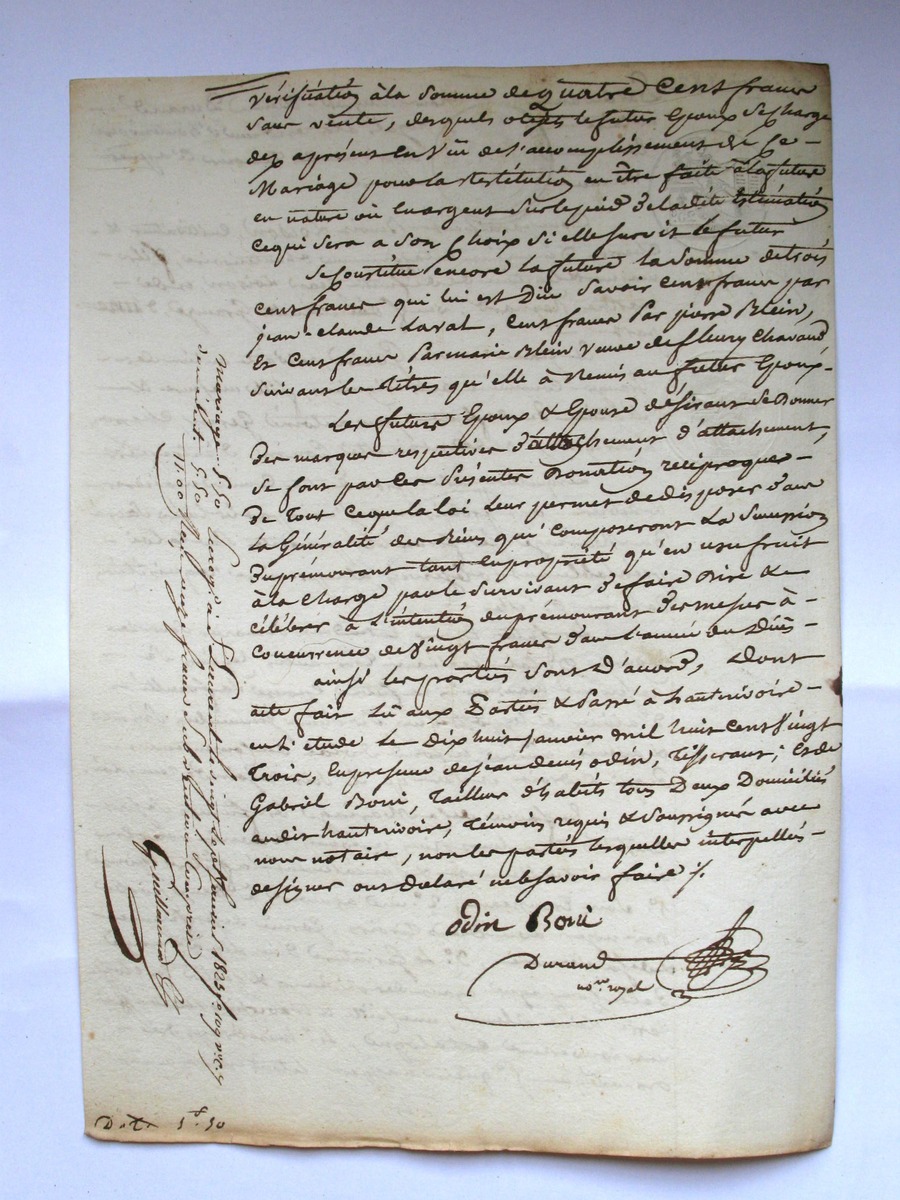 vérification à la somme de quatre cent francs
sans vente, desquels objets le futur Epoux se charge
dex aprésent en Vüe de l'accomplissement de ce
Mariage pour la restitution en être faite à la future
en nature où en argent sur le pied de la dite Estimation
ce qui sera a son Choix si elle survit le futur
Se Constitue encore la future la somme de trois
cent francs qui lui est Düe Savoir cent francs par
jean-claude Laval, Cent francs Par pierre Blein,
Et Cent francs Par marie Blein Veuve de fleury Chavand
Suivant les titres qu'elle à Remis au futur Epoux.
Les futurs Epoux & Epouse désirant se Donner
Des marques respectives d'attachement,
Se font par ces présentes Donation réciproque
De Tout ce que la loi Leur permet de disposer dans
La Généralité des Biens qui composeront La Succession
Du prémourant tant en propriété qu'en usufruit
à la Charge par le Survivant de faire Dire &
célébrer à L'intention du prémourant des messes à
Concurrence de Vingt francs dans l'année du Décès
ainsi les parties sont D'accord, Dont
acte fait Lû aux Parties & Passé à hauterivoire
en L'étude Le Dix huit janvier mil huit cent Vingt
Trois, En présence de jean denis odin, Tisserant, Et de
Gabriel Boni, Tailleur d'habits tous Deux Domiciliés
audit hauterivoire, Témoins requis & Soussignés avec
nous notaire, non les parties lesquelles interpellés
de signer ont Déclaré ne le Savoir faire ./.
odin Boni
Durand
nore royal
Mariage 5.50 Enregé à St Laurent le vingt janvier 1823 fo 109 vo c. 4
donation 5.50
11.00 Reçu onze francs
Guillaume
Dxe 1f 10